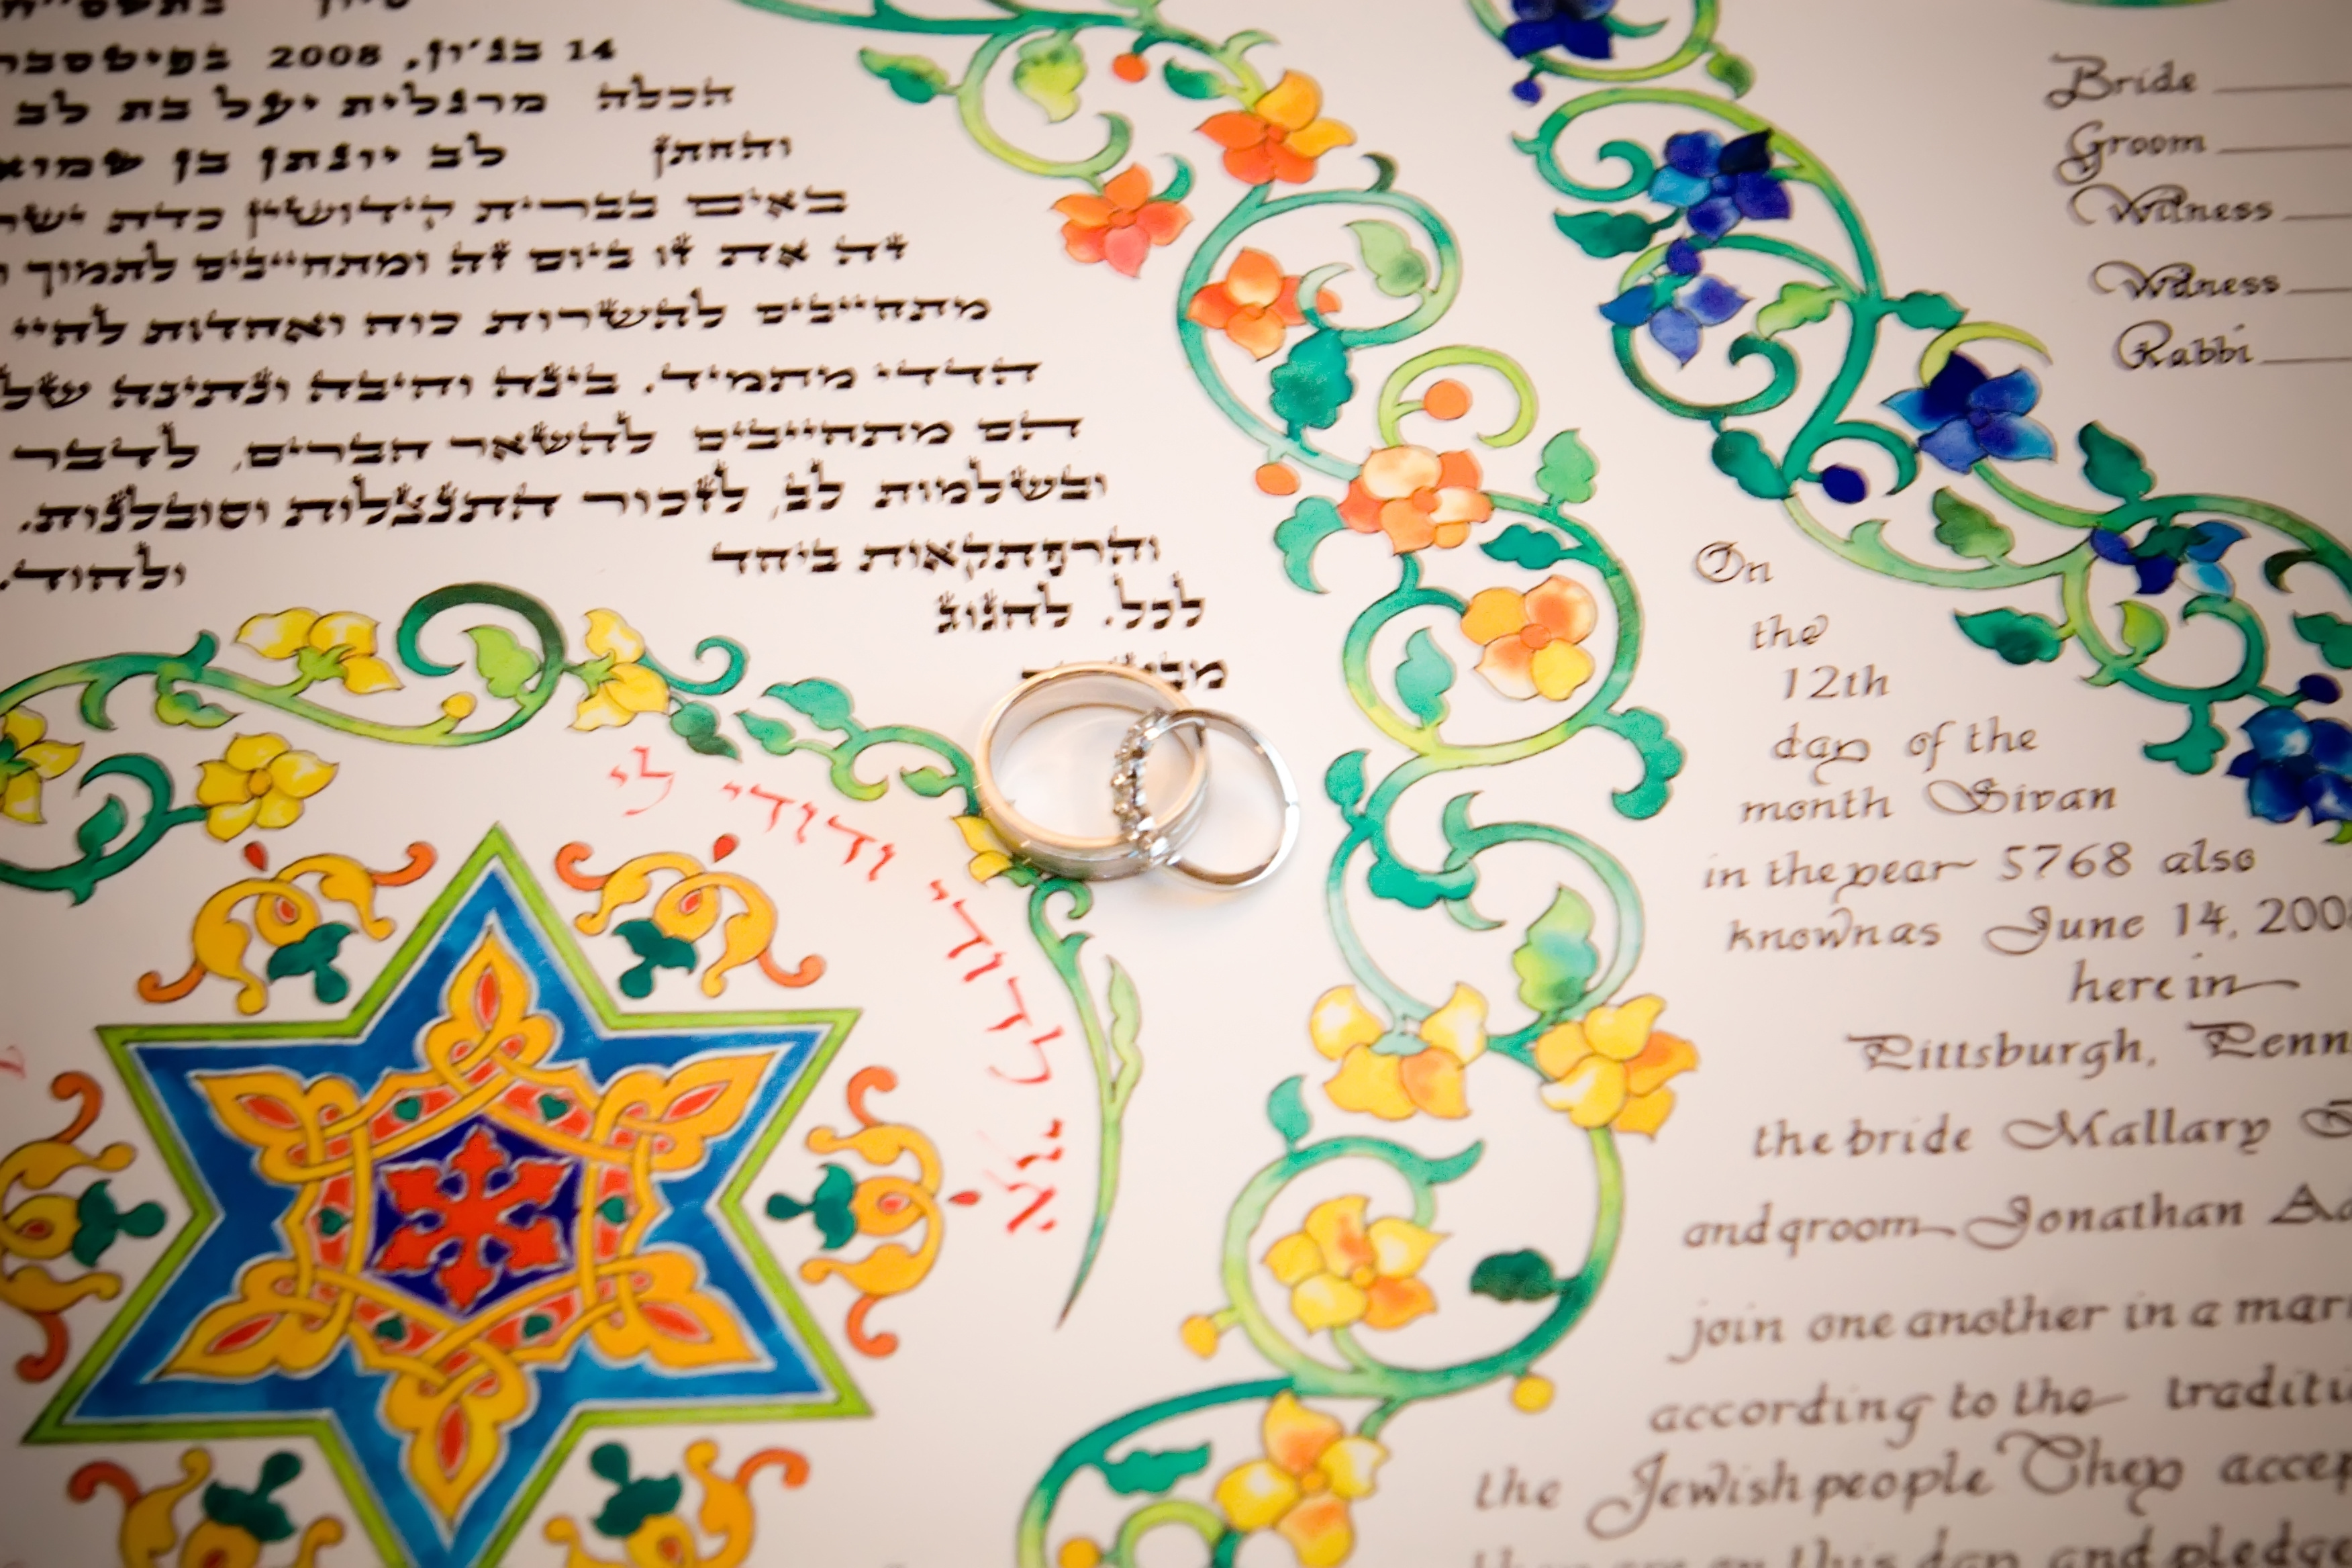 14 בג'ון, 2008 בפיטסבר
הכלה מרגלית יעל בת לב
והחתן לב יונתן בן שמוא
באים בברית קידושין כדת ישר
זה את זו ביום זה ומתחייבים לתמוך
מתחייבים להשרות כוח ואחדות לחיי
הדדי מתמיד. בינה וחיבה ונתינה של
הם מתחייבים להשאר חברים, לדבר
ובשלמות לב, לזכור התנצלות וסובלנות.
והרפתקאות ביחד
ולהודי.
לכל. להנוג
אני לדודי ודודי לי
Bride
Groom
Witness
Witness
Rabbi
On
the
12th
day of the
month Sivan
in the year 5768 also
known as June 14, 200
here in
Pittsburgh, Penn
the bride Mallary
and groom Jonathan
join one another in a mar
according to the traditi
the Jewish people They accep
this day and pledge